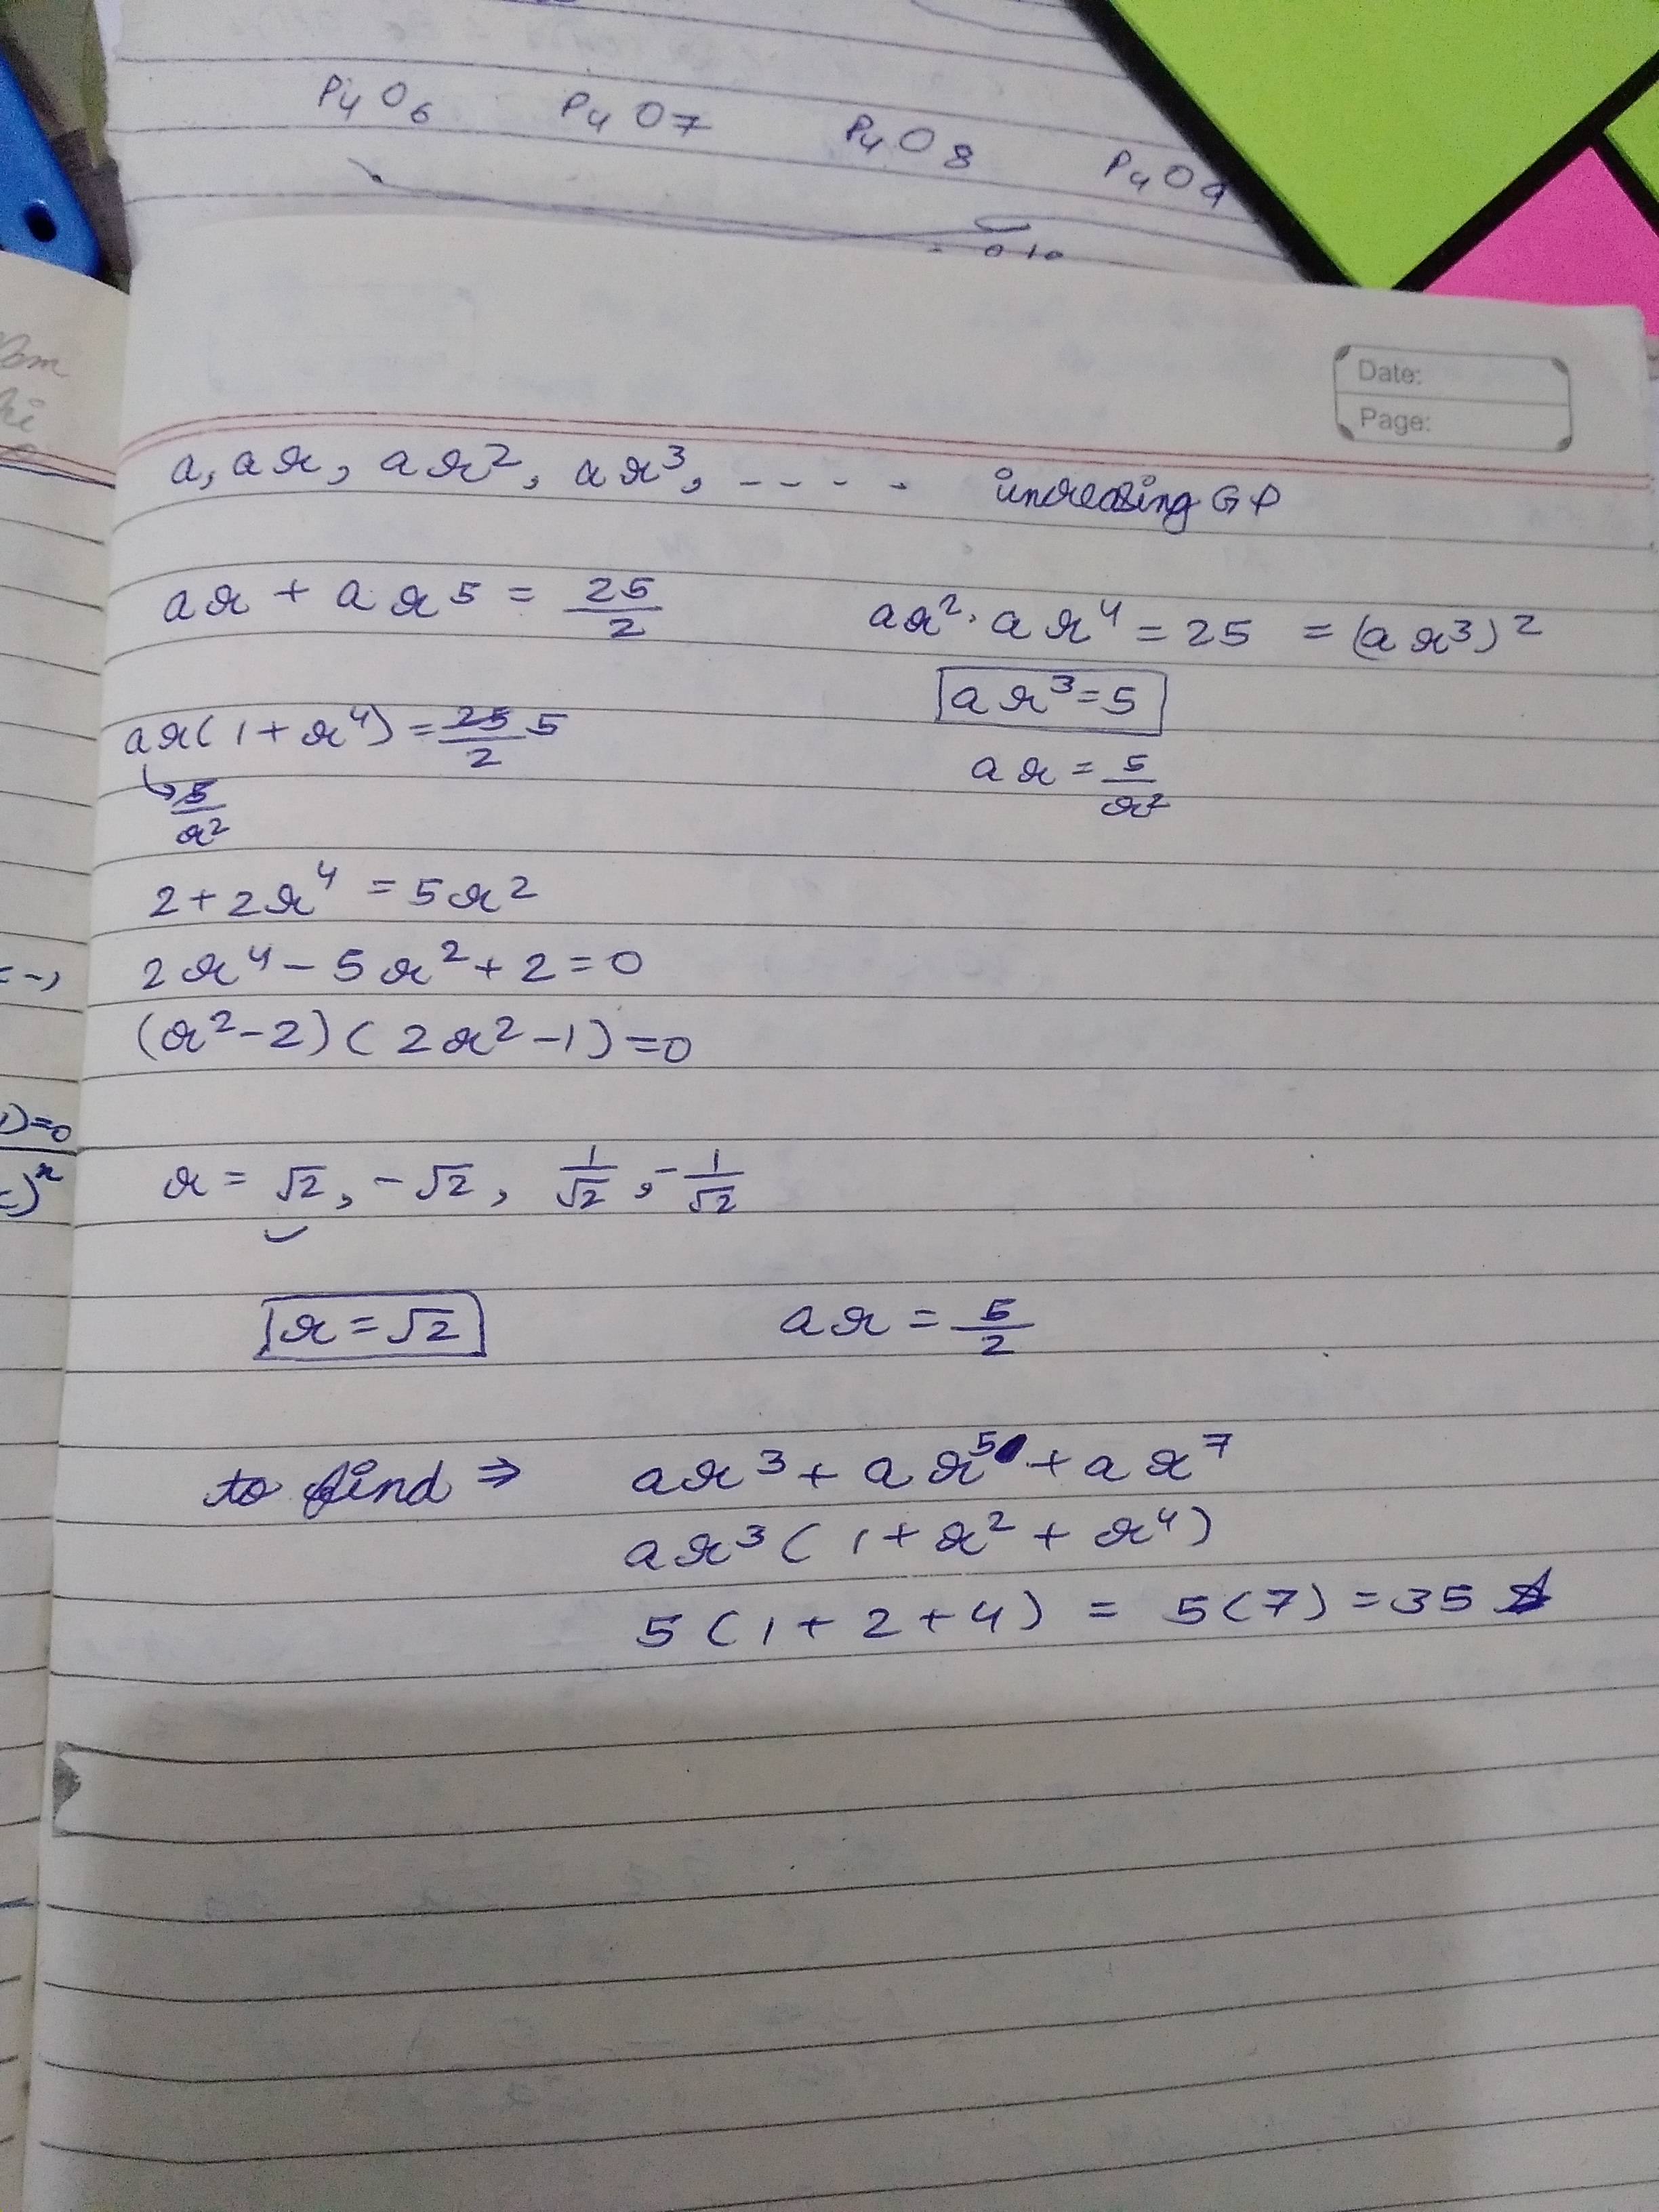 P4O6 P4O7 P4O8 P4O9
Date:
Page:
a, ar, ar², ar³, - - - - increasing GP
ar + ar5 = 25/2 ar² · ar⁴ = 25 = (ar³)²
ar³ = 5
ar(1 + r⁴) = 25/2 5
ar = 5/r²
5/r²
2 + 2r⁴ = 5r²
2r⁴ - 5r² + 2 = 0
(r² - 2)(2r² - 1) = 0
r = √2, -√2, 1/√2, -1/√2
r = √2 ar = 5/2
to find ⇒ ar³ + ar⁵ + ar⁷
ar³(1 + r² + r⁴)
5(1 + 2 + 4) = 5(7) = 35